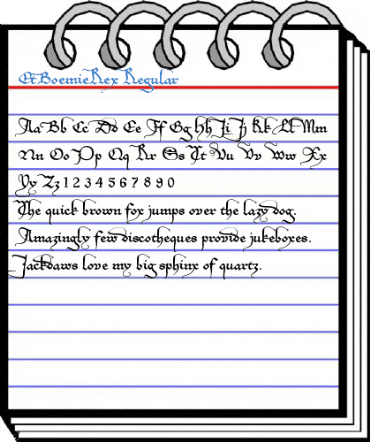 EtBoemieRex Regular
Aa Bb Cc Dd Ee Ff Gg hh Ii Jj Kk Ll Mm
Nn Oo Pp Qq Rr Ss Tt Uu Vv Ww Xx
Yy Zz 1 2 3 4 5 6 7 8 9 0
The quick brown fox jumps over the lazy dog.
Amazingly few discotheques provide jukeboxes.
Jackdaws love my big sphinx of quartz.